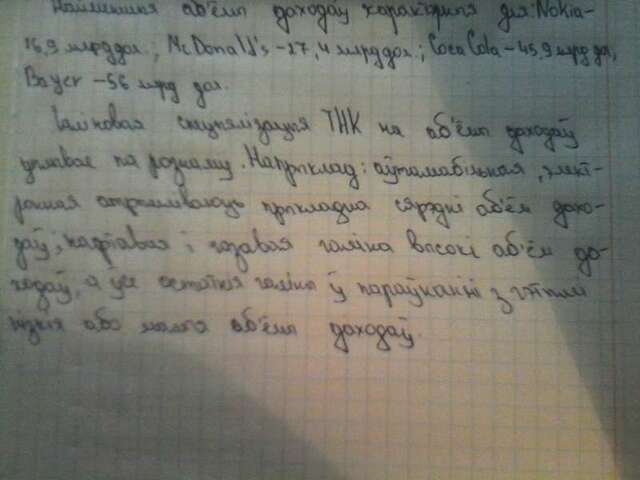 Найменшыя аб'ёмы даходаў характэрныя для: Nokia-
16,9 млрд дол., McDonald's - 27,4 млрд дол., Coca Cola - 45,9 млрд дол,
Bayer - 56 млрд дол.
Галіновая спецыялізацыя ТНК на аб'ём даходаў
уплывае па рознаму. Напрыклад: аўтамабільная, элект-
ронная атрымліваюць прыкладна сярэдні аб'ём дахо-
даў, нафтавая і газавая галіна высокі аб'ём да-
ходаў, а ўсе астатнія галіны ў параўнанні з гэтымі
нізкія або малыя аб'ёмы даходаў.